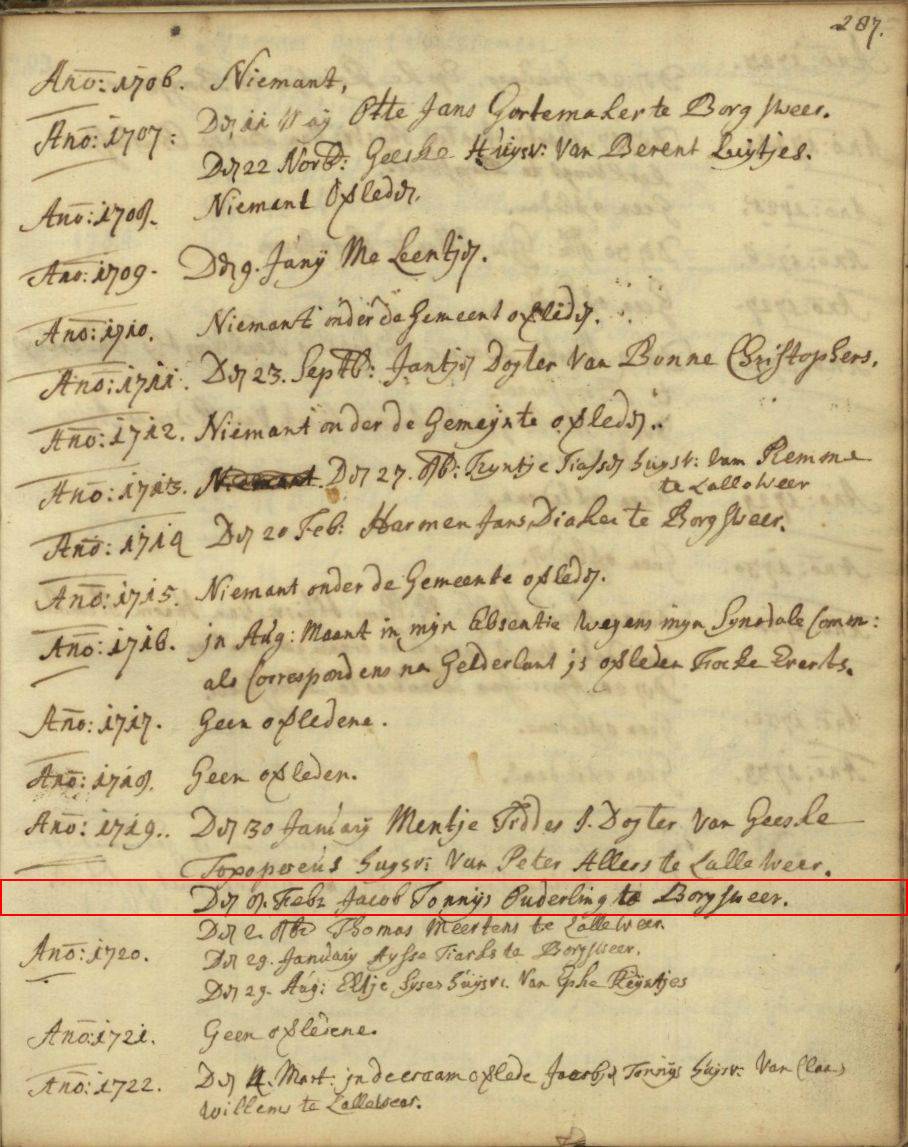 287.
Año: 1706. Niemant,
Año: 1707: Den 11 Maij Otte Jans Gortemaker te Borgsweer.
Den 22 Novb: Geeske Huijsv: van Berent Luijtjes.
Año: 1708. Niemant Oversleden.
Año: 1709. Den 9. Janij Me Leentjen.
Año: 1710. Niemant onder de Gemeent overleden.
Año: 1711. Den 23. Septb: Jantjen Dogter van Bonne Christophers.
Año: 1712. Niemant onder de Gemeijnte overleden.
Año: 1713. Niemant. Den 27. Trijntje huijsv: van Remme
te Lalleweer
Año: 1714 Den 20 Feb: Harmen Jans Diaken te Borgsweer.
Año: 1715. Niemant onder de Gemeente overleden.
Año: 1716. in Aug: Maant in mijn Absentie wegens mijn Synodale Comm:
als Correspondens na Gelderlant is overleden Focke Everts.
Año: 1717. Geen overledene.
Año: 1718. Geen overleden.
Año: 1719. Den 30 Januarij Mentje Fiddes J. Dogter van Geeske
huijsv: van Peter Allers te Lalleweer.
Den 8. Feb: Jacob Tonnijs Ouderling te Borgsweer.
Den 2. Thomas Meertens te Lalleweer
Año: 1720. Den 29. Januarij Aysse Tiarks te Borgsweer.
Den 29. Aug: Eltje huijsv: van Epke Reijntjes
Año: 1721. Geen overledene.
Año: 1722. Den 4. Mart: in de craam overlede Tonnijs huijsv: van Claas
Willems te Lalleweer.